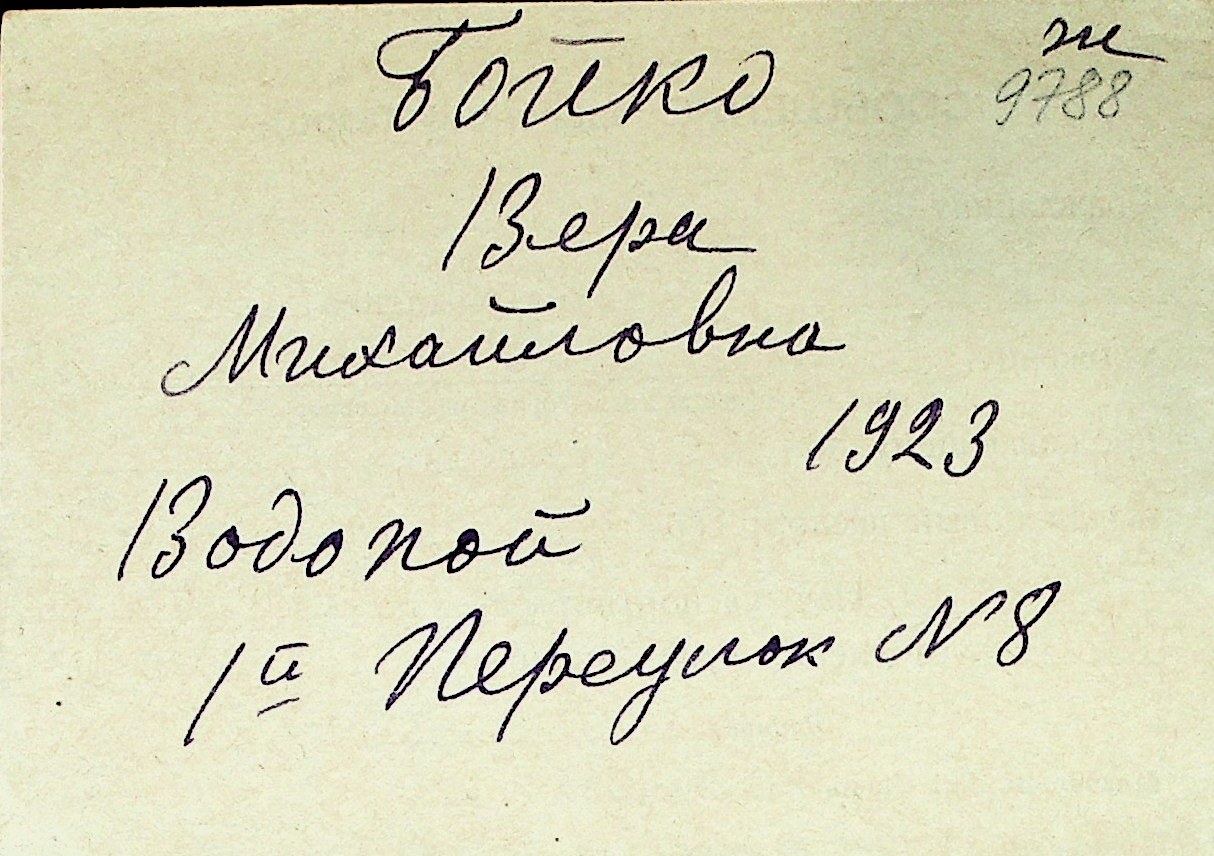 Бойко
ж
9788
Вера
Михайловна
1923
Водопой
1й Переулок N 8